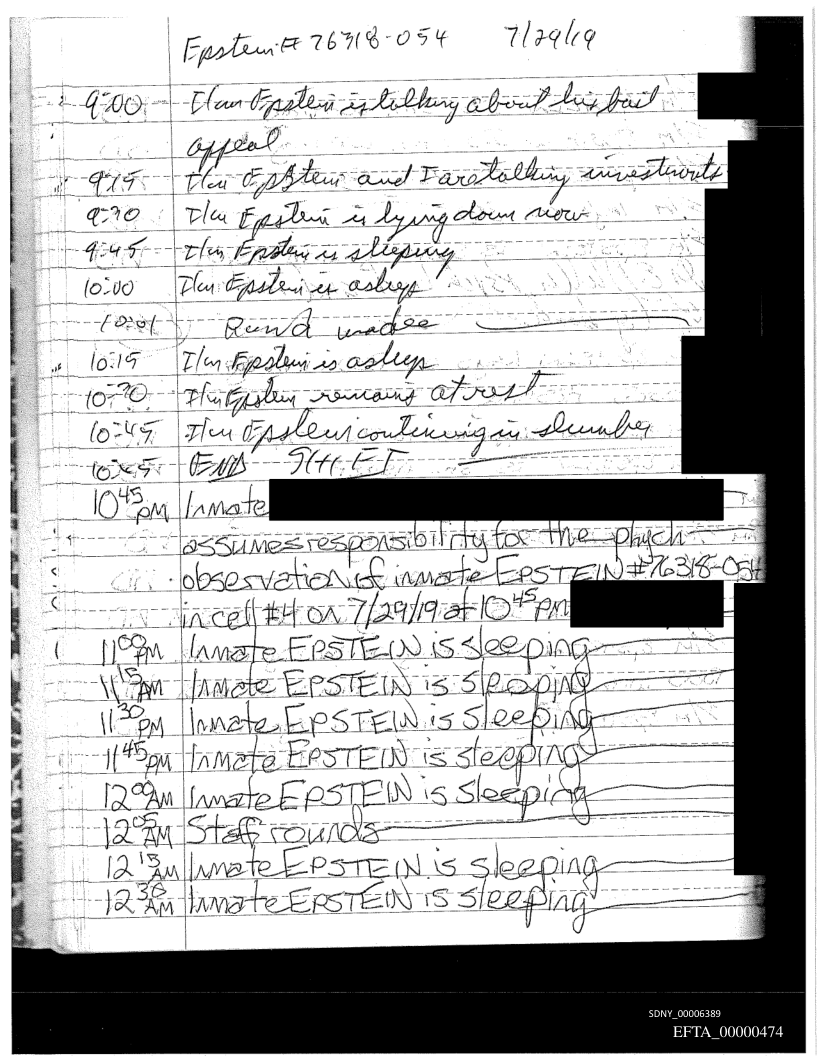 Epstein # 76318-054 7/29/19
9:00 I/m Epstein is talking about his bail
appeal
9:15 I/m Epstein and I are talking investments
9:30 I/m Epstein is lying down now
9:45 I/m Epstein is sleeping
10:00 I/m Epstein is asleep
10:01 Round made
10:15 I/m Epstein is asleep
10:30 I/m Epstein remains at rest
10:45 I/m Epstein continuing in slumber
10:45 END SHIFT
10 45 PM Inmate
assumes responsibility for the phych
observation of inmate EPSTEIN #76318-054
in cell #4 on 7/29/19 at 10 45 PM
11 00 PM Inmate EPSTEIN is sleeping
11 15 AM Inmate EPSTEIN is sleeping
11 30 PM Inmate EPSTEIN is sleeping
11 45 PM Inmate EPSTEIN is sleeping
12 00 AM Inmate EPSTEIN is sleeping
12 05 AM Staff rounds
12 15 AM Inmate EPSTEIN is sleeping
12 30 AM Inmate EPSTEIN is sleeping
SDNY_00006389
EFTA_00000474